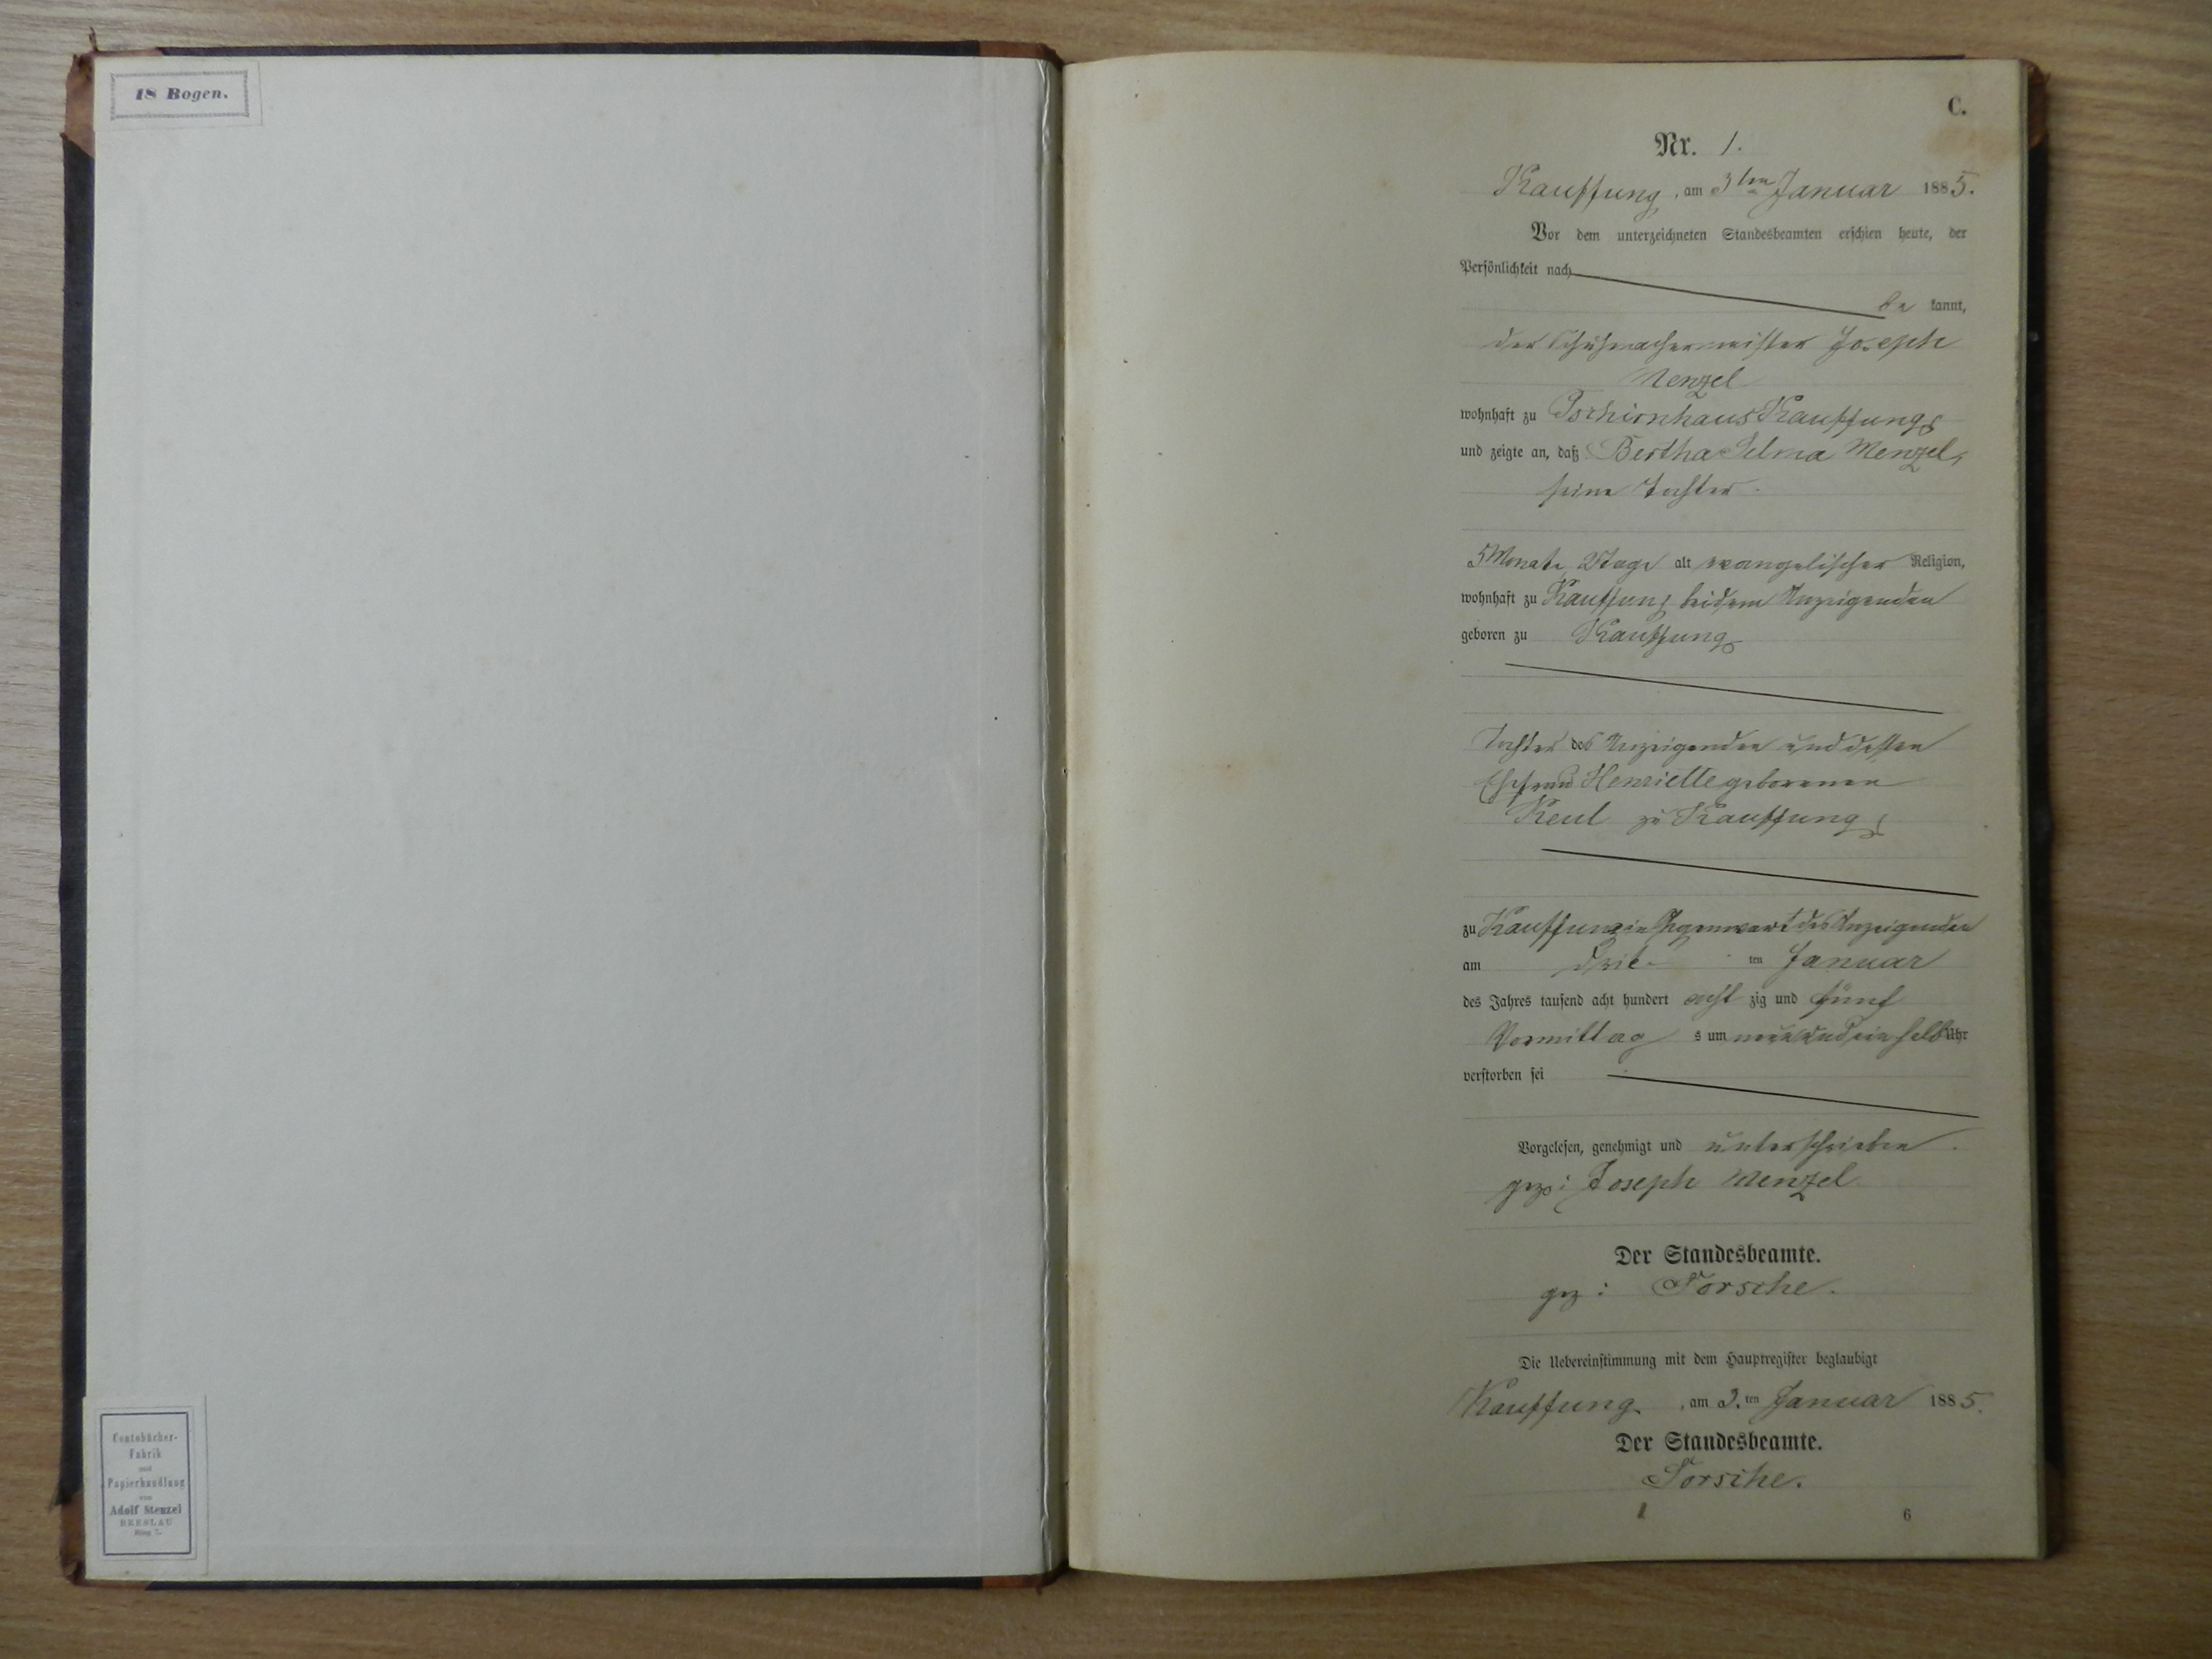 18 Bogen.
Contobücher-
Fabrik
und
Papierhandlung
von
Adolf Stenzel
BRESLAU
Ring 7.
C.
Nr. 1.
Kauffung, am 3ten Januar 1885.
Vor dem unterzeichneten Standesbeamten erschien heute, der
Persönlichkeit nach
be kannt,
der Schuhmachermeister Joseph
Menzel
wohnhaft zu Tschirnhaus Kauffung
und zeigte an, daß Bertha Selma Menzel,
seine Tochter
5 Monate 2 Tage alt evangelischer Religion,
wohnhaft zu Kauffung bei dem Anzeigenden
geboren zu Kauffung
Tochter des Anzeigenden und dessen
Ehefrau Henriette geborenen
Keul zu Kauffung
zu Kauffung in Gegenwart des Anzeigenden
am drit- ten Januar
des Jahres tausend acht hundert acht zig und fünf
Vormittag s um neun und ein halb Uhr
verstorben sei
Vorgelesen, genehmigt und unterschrieben.
gez: Joseph Menzel
Der Standesbeamte.
gez: Torsche.
Die Uebereinstimmung mit dem Hauptregister beglaubigt
Kauffung, am 3. ten Januar 1885.
Der Standesbeamte.
Torsche.
1 6